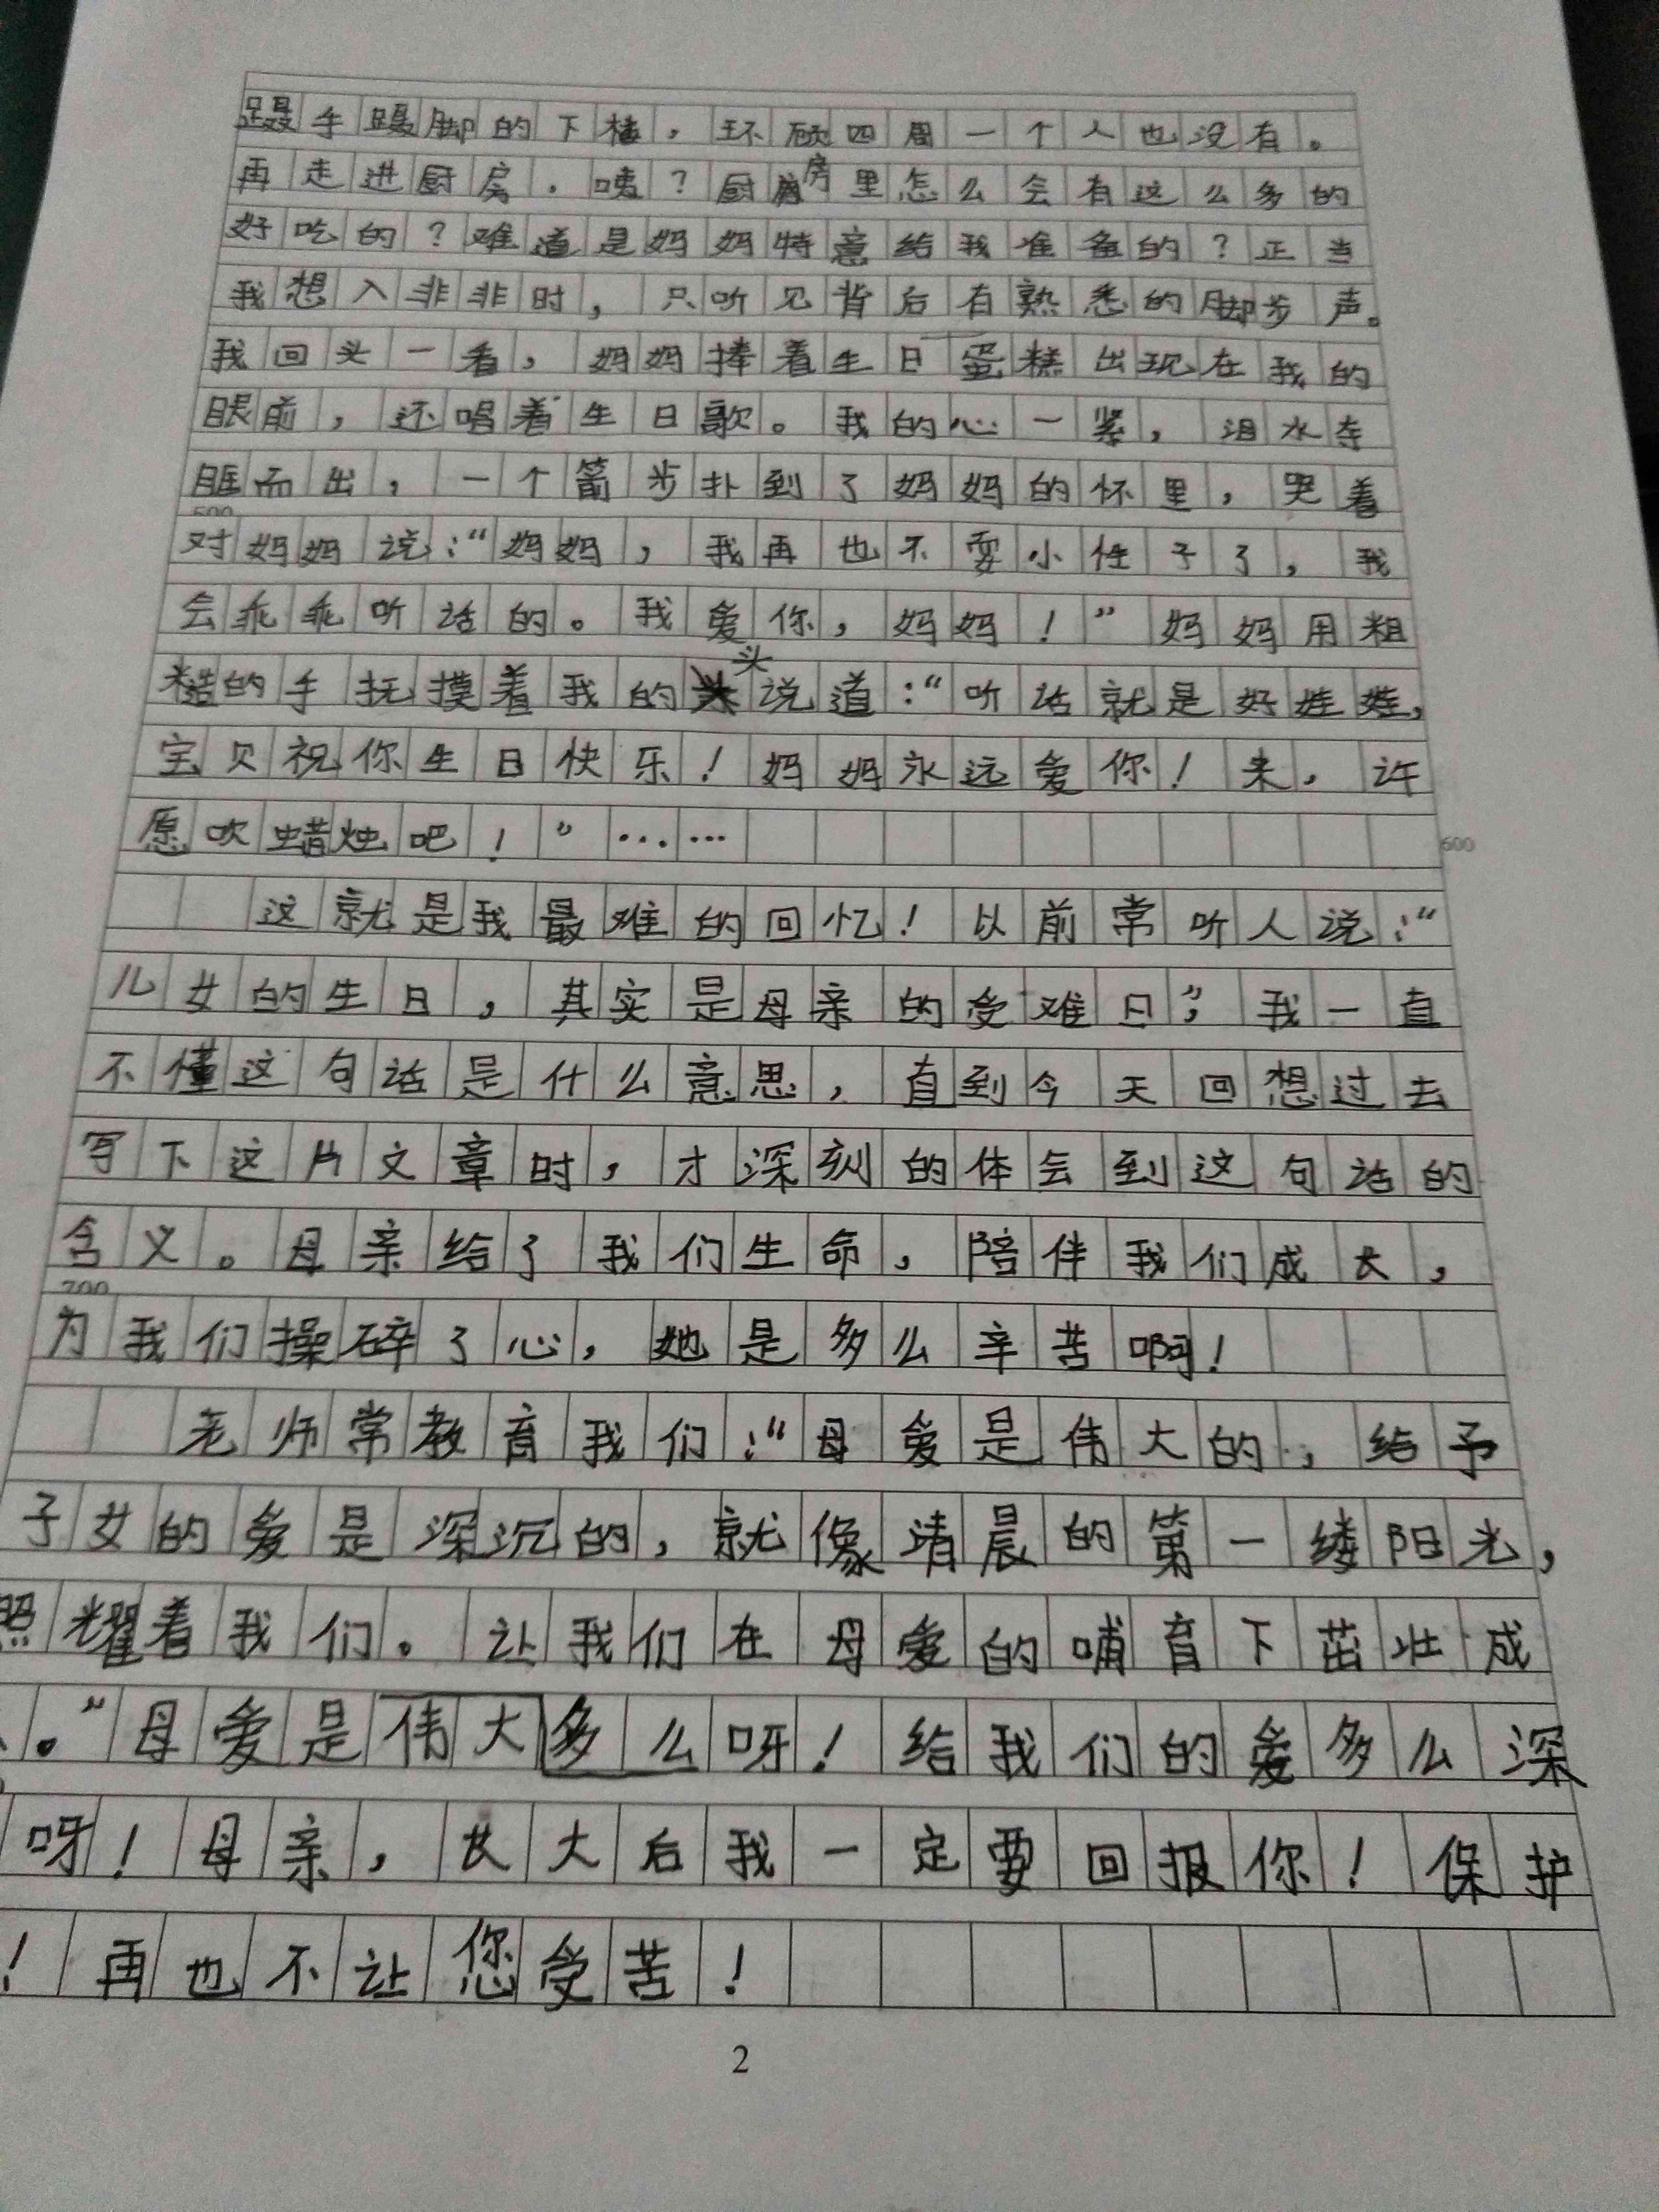 蹑手蹑脚的下楼，环顾四周一个人也没有。
再走进厨房．咦？厨房里怎么会有这么多的
好吃的？难道是妈妈特意给我准备的？正当
我想入非非时，只听见背后有熟悉的脚步声。
我回头一看，妈妈捧着生日蛋糕出现在我的
眼前，还唱着生日歌。我的心一紧，泪水夺
眶而出，一个箭步扑到了妈妈的怀里，哭着
500
对妈妈说：“妈妈，我再也不耍小性子了，我
会乖乖听话的。我爱你，妈妈！”妈妈用粗
糙的手抚摸着我的头说道：“听话就是好娃娃，
宝贝祝你生日快乐！妈妈永远爱你！来，许
愿吹蜡烛吧！”……
600
这就是我最难的回忆！以前常听人说：“
儿女的生日，其实是母亲的受难日”，我一直
不懂这句话是什么意思，直到今天回想过去
写下这片文章时，才深刻的体会到这句话的
含义。母亲给了我们生命，陪伴我们成长，
700
为我们操碎了心，她是多么辛苦啊！
老师常教育我们：“母爱是伟大的，给予
子女的爱是深沉的，就像清晨的第一缕阳光，
照耀着我们。让我们在母爱的哺育下茁壮成
。”母爱是伟大多么呀！给我们的爱多么深
呀！母亲，长大后我一定要回报你！保护
！再也不让您受苦！
2